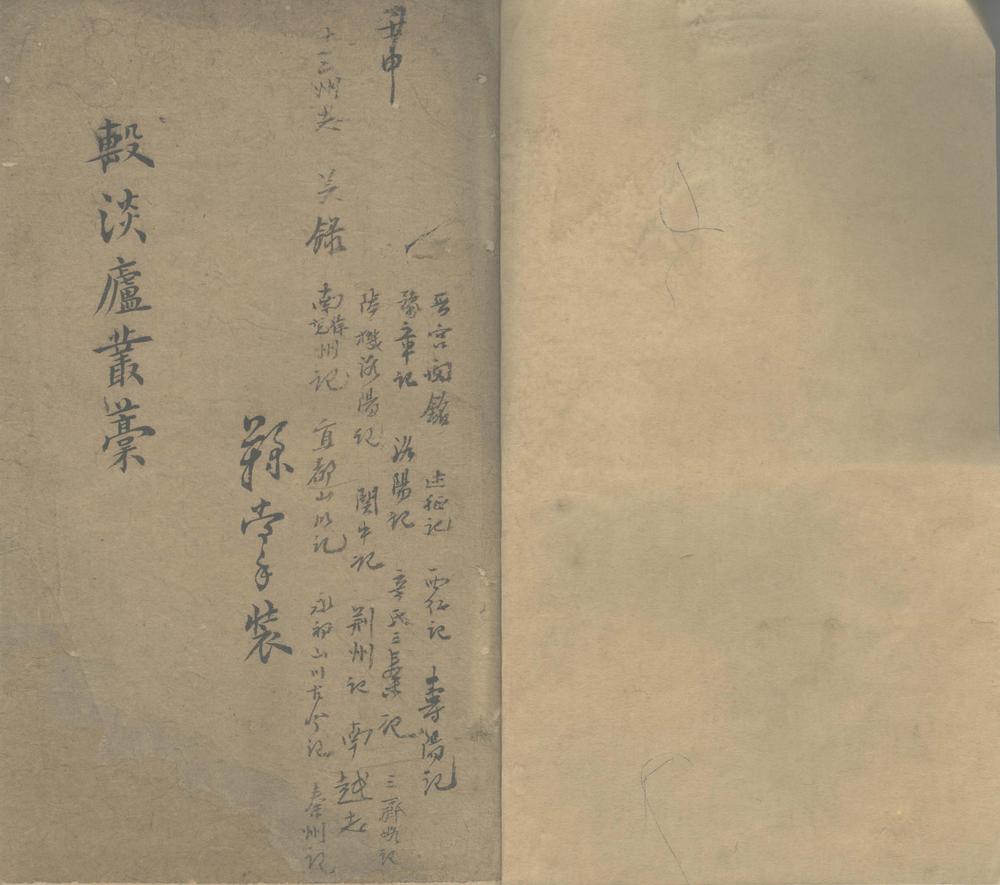 晋宮闕銘 述征記 西征記 壽陽記
豫章記 洛陽記 辛氏三秦記 三齊略記
陸機洛陽記 關中記 荆州記 南越志
十三州志 吴錄 南徐州記 宜都山川記 永初山川古今記 秦州記
手裝
㲄淡廬叢藁